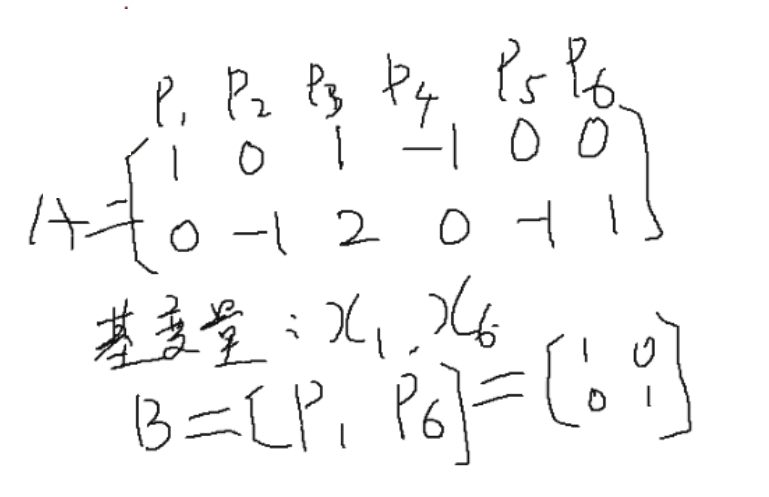 P₁ P₂ P₃ P₄ P₅ P₆
A = [1 0 1 -1 0 0
0 -1 2 0 -1 1]
基变量：x₁, x₆
B = [P₁ P₆] = [1 0
0 1]